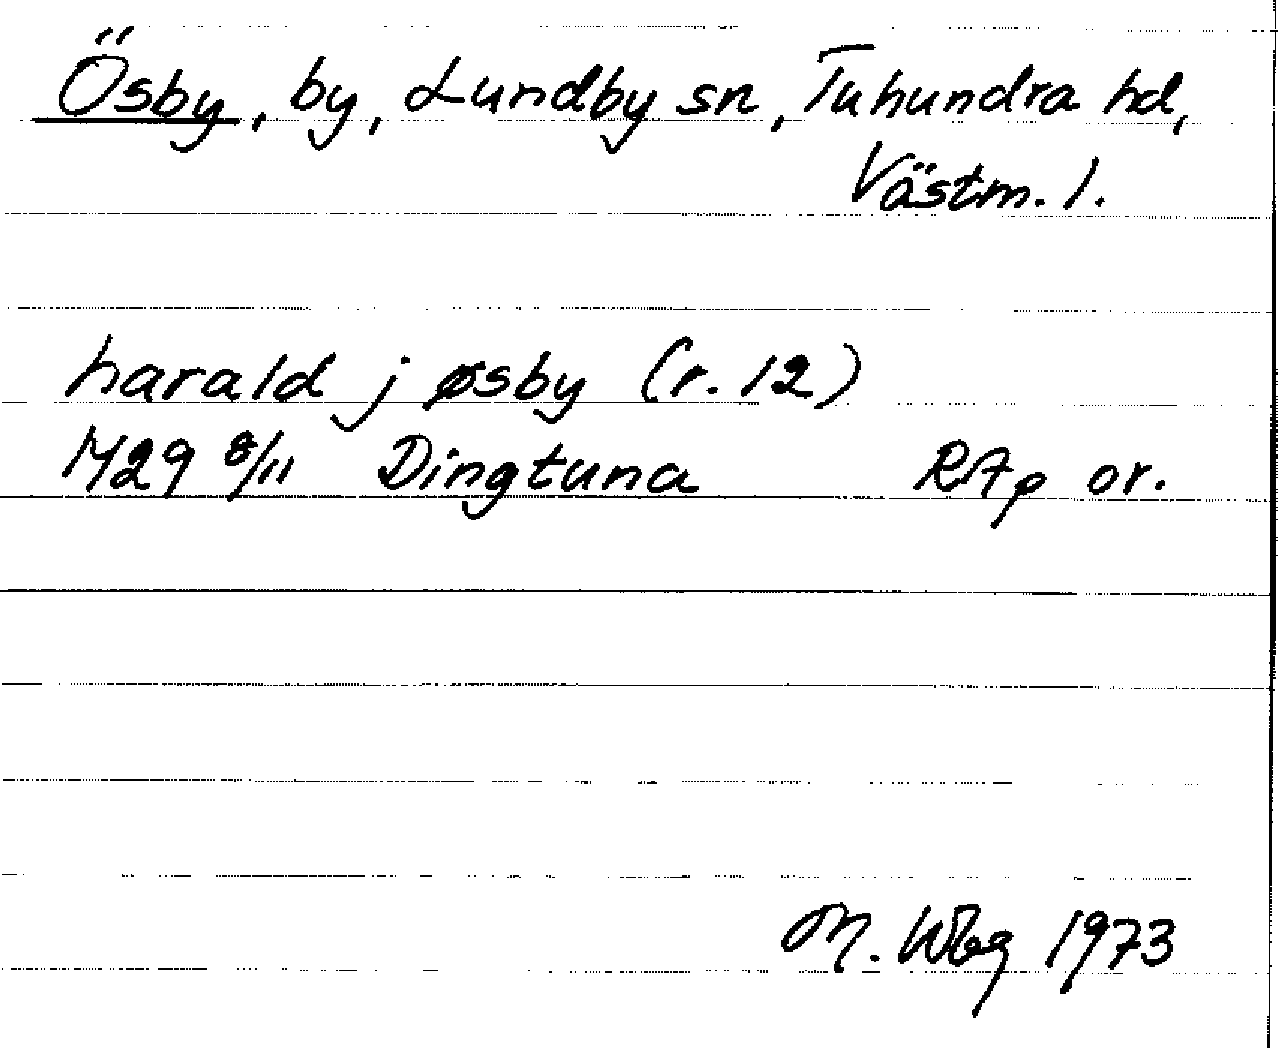 Ösby, by, Lundby sn, Tuhundra hd,
Västm. l.
harald j øsby (r. 12)
1429 8/11 Dingtuna RAp or.
M. Wbg 1973